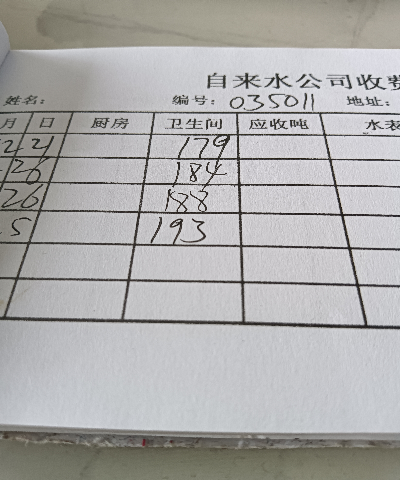 自来水公司收费
姓名: 编号: 035011 地址:
月 日 厨房 卫生间 应收吨 水表
179
184
26 188
5 193